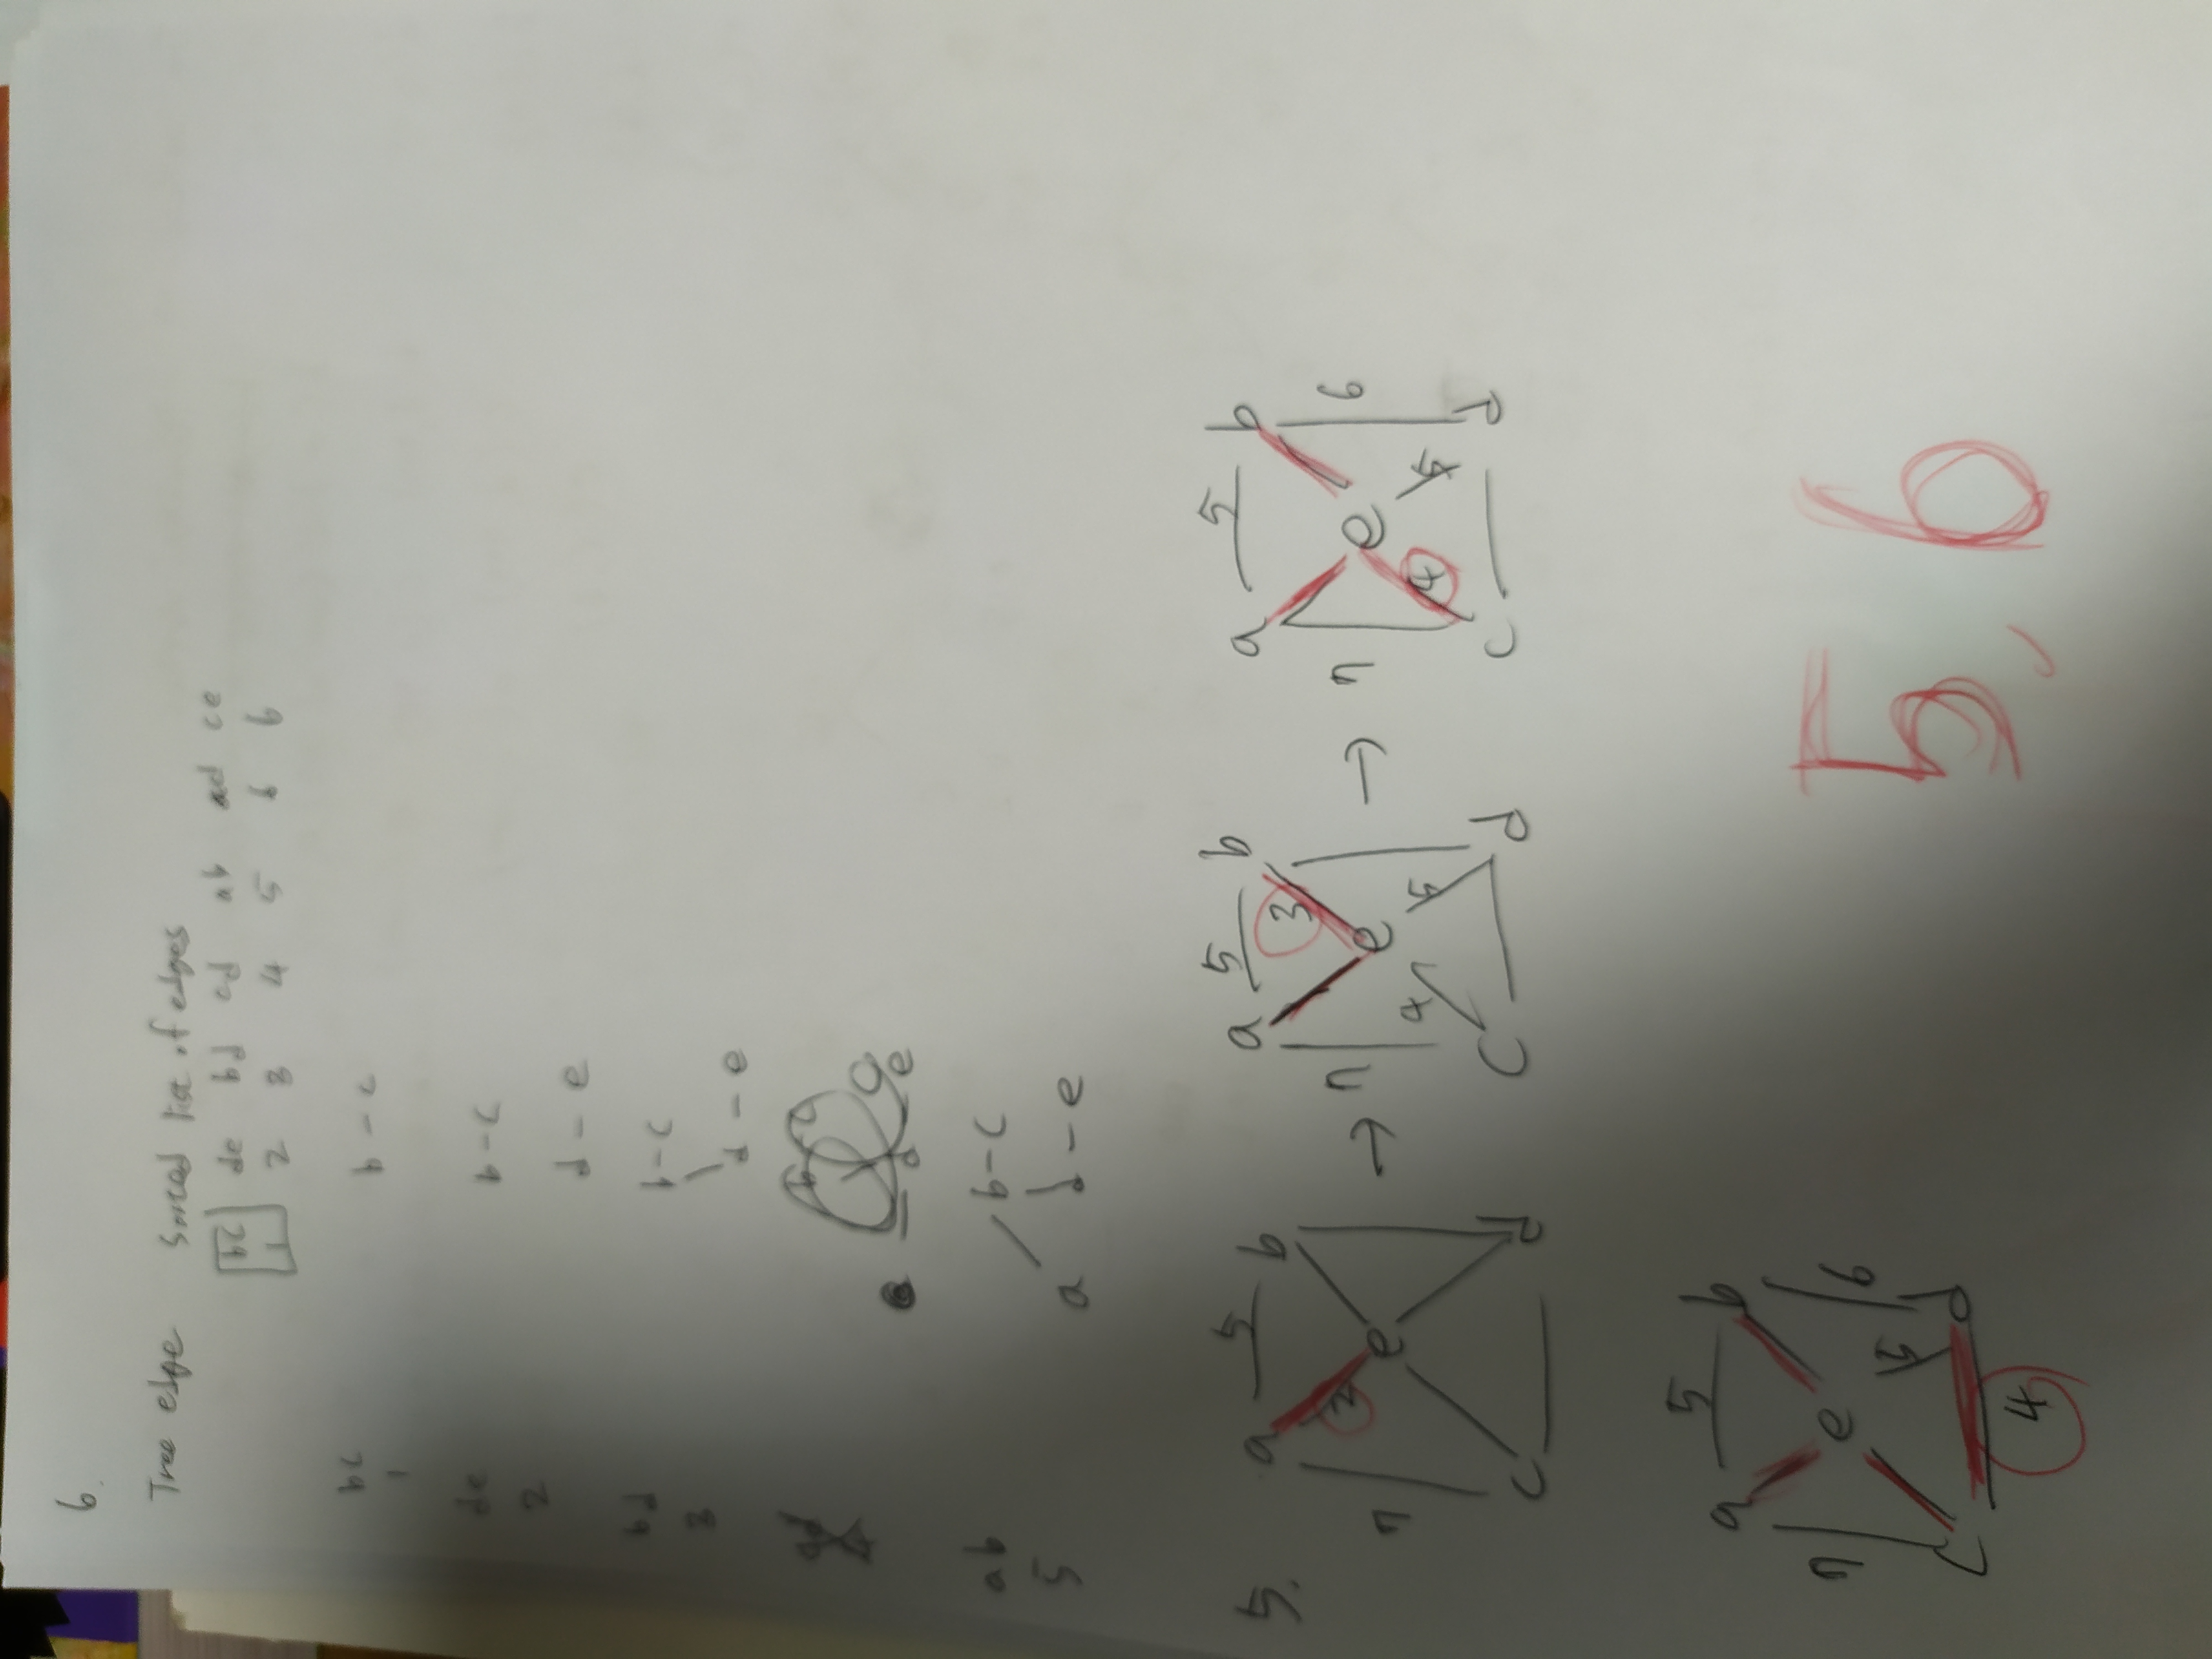 6.
Tree edge Sorted list of edges
bc de bd cd ab ad ce
1 2 3 4 5 6 6
bc b - c
1
de b - c
2
d - e
bd b - c
3
d - e
b c
d e
ab b - c
5
a d - e
5.
a 5 b
2
7 e
c d
→
a 5 b
3
7 e
4 5
c d
→
a 5 b
7 e 6
4 5
c d
a 5 b
7 e 6
5
c d
4
5, 6